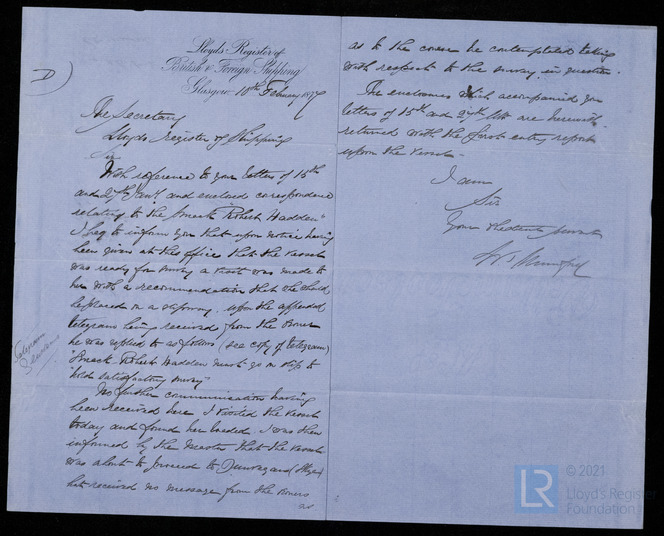 D
Lloyd's Register of
British & Foreign Shipping
Glasgow 10th February 1877
The Secretary
Lloyds Register of Shipping
Sir
With reference to your letters of 15th
and 27th Jany and enclosed correspondence
relating to the Smack "Robert Hadden"
I beg to inform you that upon notice having
been given at this office that the vessel
was ready for survey a visit was made to
her with a recommendation that she should
be placed on a slipway. upon the appended
telegram being received from the owner
he was replied to as follows (see copy of telegram)
"Smack Robert Hadden must go on slip to
"hold satisfactory survey"
No further communication having
been received here I visited the vessel
today and found her loaded. I was then
informed by the Master that the vessel
was about to proceed to
but received no message from the owners
as
as to the course he contemplated taking
with respect to the survey in question.
The enclosures which accompanied your
letters of 15th and 27th Ulto are herewith
returned with the first entry report
upon the vessel.
I am
Sir
Your obedient servant
© 2021
LR
Lloyd's Register
Foundation